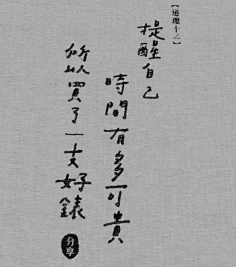 提醒自己
時間有多可貴
所以買了一支好錶
分享